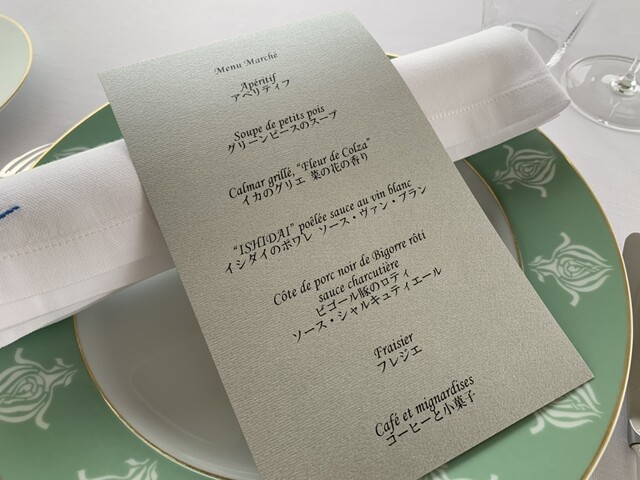 Menu Marché
Apéritif
アペリティフ
Soupe de petits pois
グリーンピースのスープ
Calmar grillé, “Fleur de Colza”
イカのグリエ 菜の花の香り
“ISHIDAI” poêlée sauce au vin blanc
イシダイのポワレ ソース・ヴァン・ブラン
Côte de porc noir de Bigorre rôti
sauce charcutière
ビゴール豚のロティ
ソース・シャルキュティエール
Fraisier
フレジエ
Café et mignardises
コーヒーと小菓子